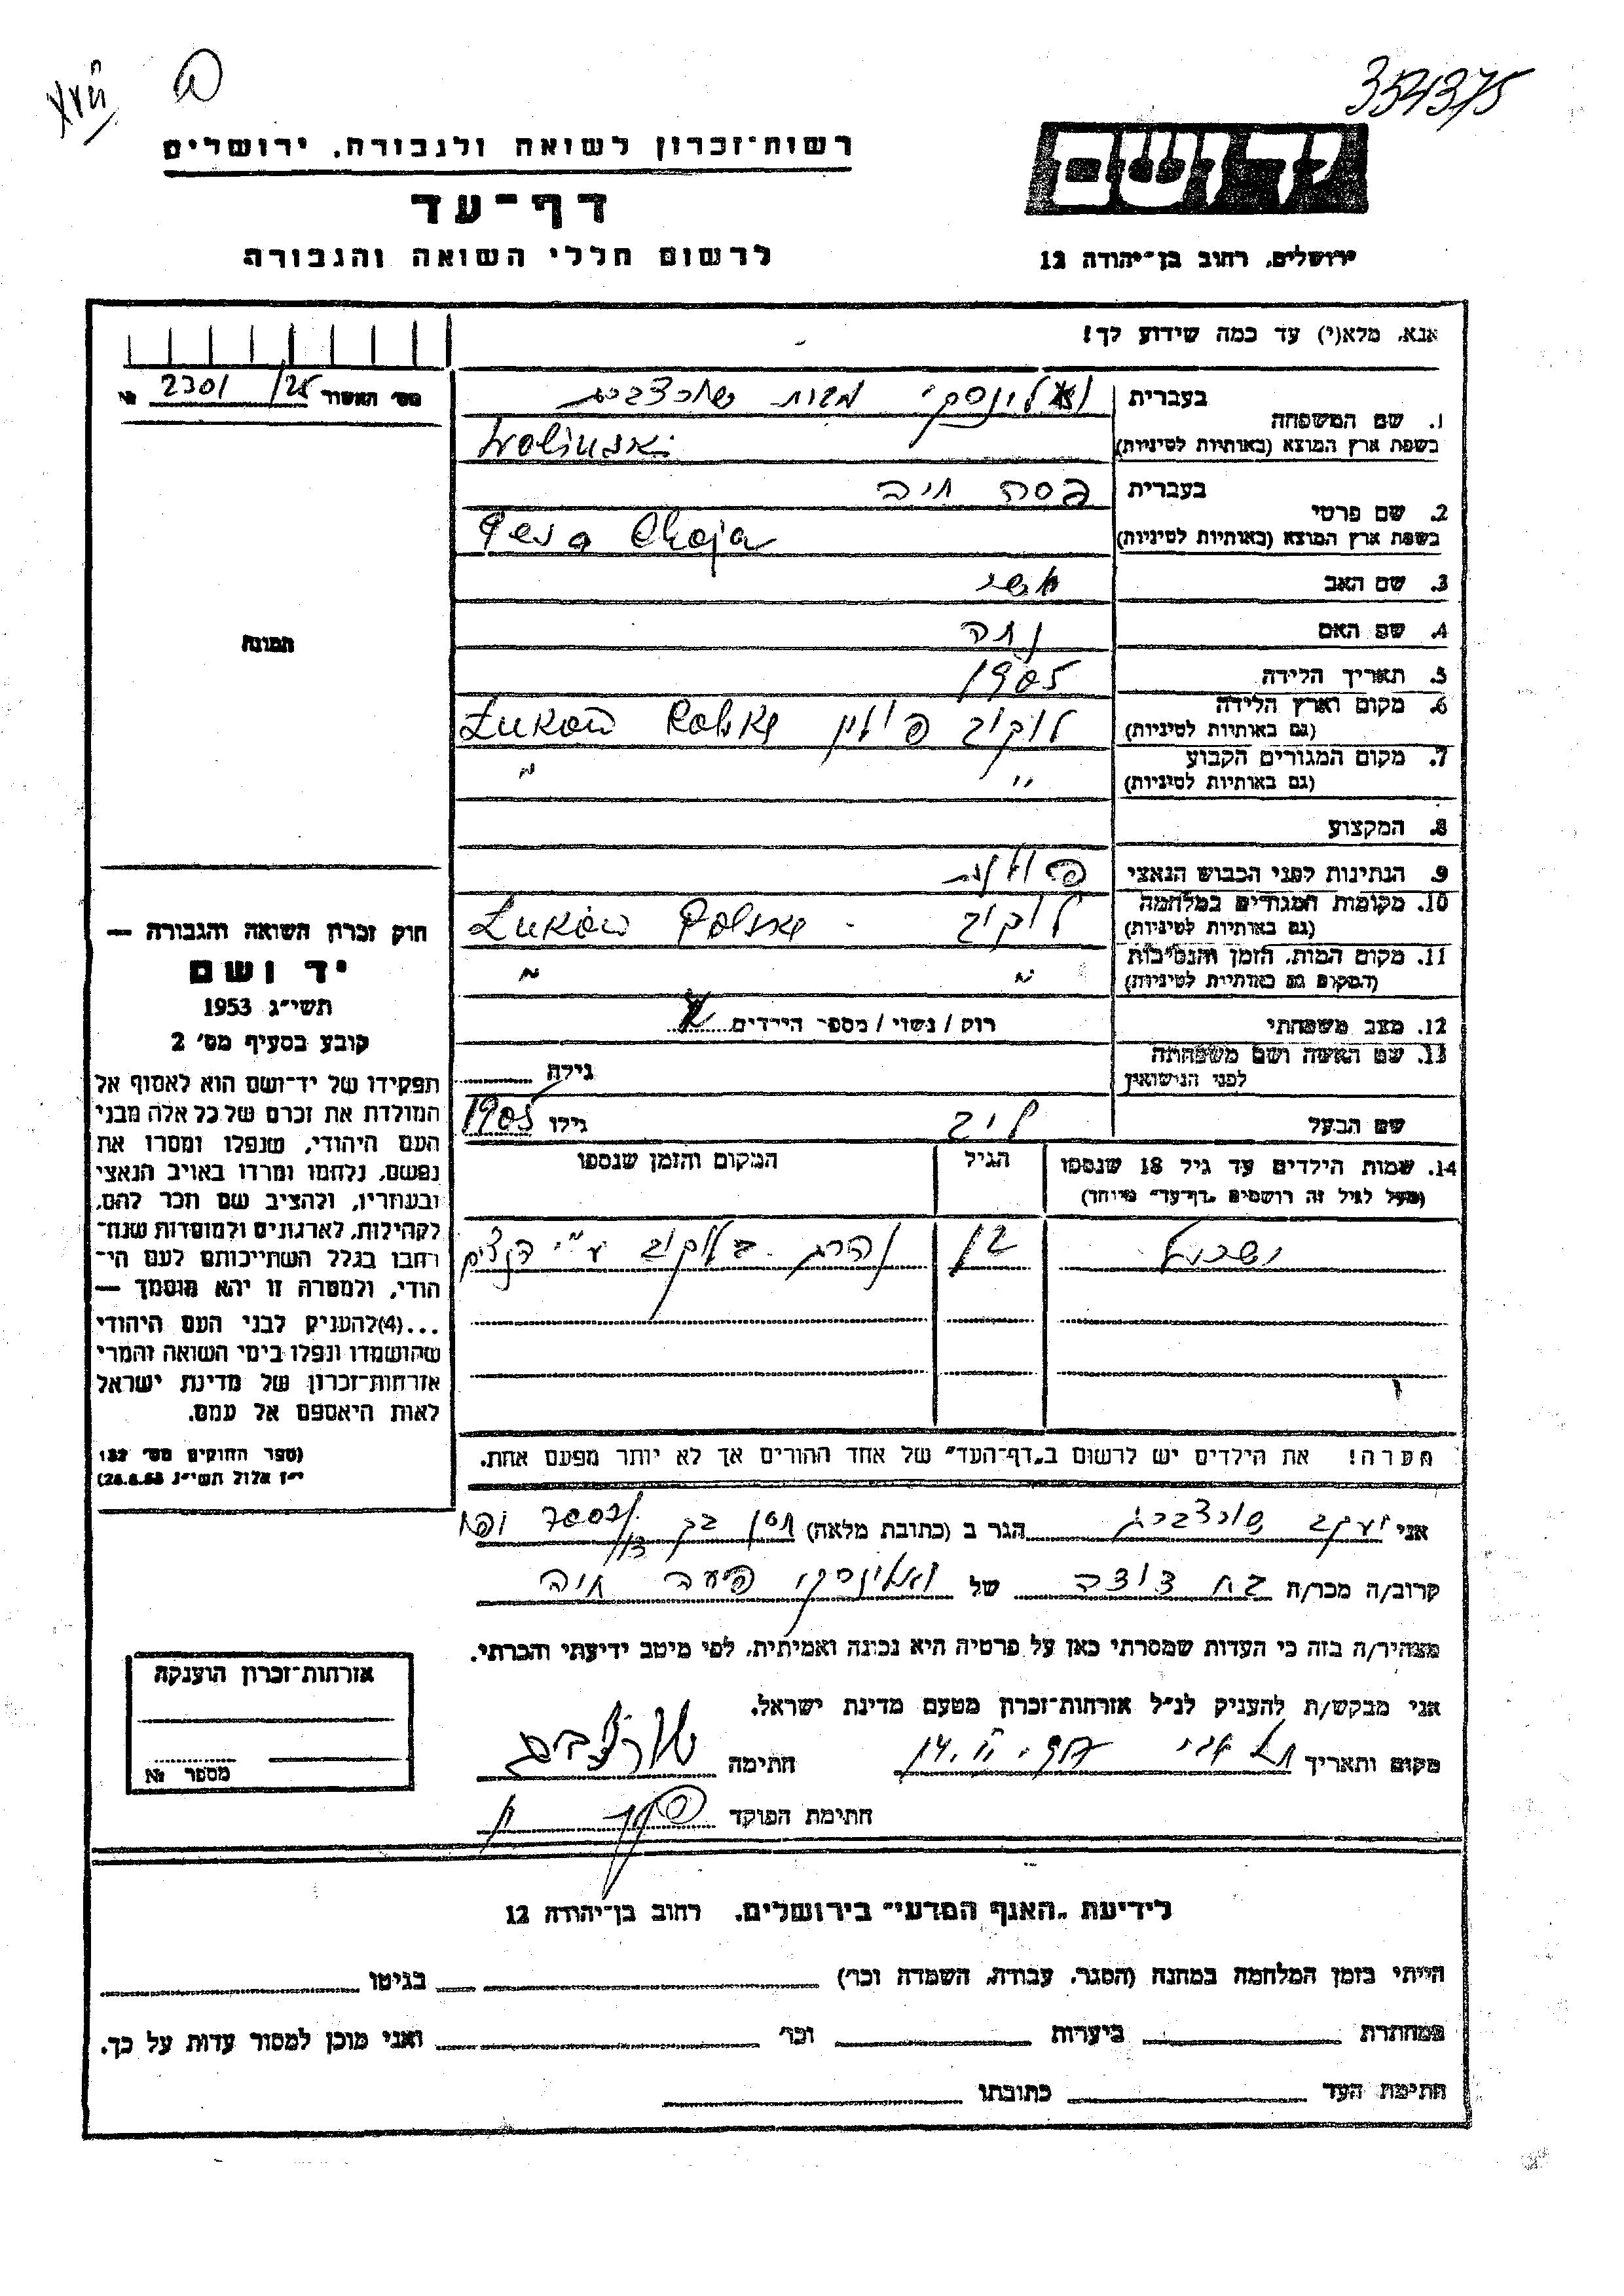 354375
רשות־זכרון לשואה ולגבורה, ירושלים
דף־עד
לרשום חללי השואה והגבורה
יד ושם
ירושלים, רחוב בן־יהודה 12
אנא, מלא(י) עד כמה שידוע לך!
מס׳ האשור 2301/25 №
1. שם המשפחה
בעברית ואלינסקי מבית שורצברג
בשפת ארץ המוצא (באותיות לטיניות) Woliński
2. שם פרטי
בעברית פסה חיה
בשפת ארץ המוצא (באותיות לטיניות) Pesa Chaja
3. שם האב
4. שם האם
5. תאריך הלידה 1905
6. מקום וארץ הלידה לוקוב פולין Łuków Polska
(גם באותיות לטיניות)
7. מקום המגורים הקבוע " "
(גם באותיות לטיניות)
8. המקצוע
9. הנתינות לפני הכבוש הנאצי פולנית
10. מקומות המגורים במלחמה לוקוב - Łuków Polska
(גם באותיות לטיניות)
11. מקום המות, הזמן והנסיבות " "
(המקום גם באותיות לטיניות)
12. מצב משפחתי רוק/נשוי/מספר הילדים
13. שם האשה ושם משפחתה
לפני הנישואין גילה
שם הבעל ליב גילו 1905
14. שמות הילדים עד גיל 18 שנספו הגיל המקום והזמן שנספו
(מעל לגיל זה רושמים „דף־עד” מיוחד)
12 נהרג בלוקוב ע״י הנצים
הערה! את הילדים יש לרשום ב„דף־העד” של אחד ההורים אך לא יותר מפעם אחת.
תמונה
חוק זכרון השואה והגבורה —
יד ושם
תשי״ג 1953
קובע בסעיף מס׳ 2
תפקידו של יד־ושם הוא לאסוף אל
המולדת את זכרם של כל אלה מבני
העם היהודי, שנפלו ומסרו את
נפשם, נלחמו ומרדו באויב הנאצי
ובעוזריו, ולהציב שם וזכר להם,
לקהילות, לארגונים ולמוסדות שנח־
רבו בגלל השתייכותם לעם הי־
הודי, ולמטרה זו יהא מוסמך —
...(4)להעניק לבני העם היהודי
שהושמדו ונפלו בימי השואה והמרי
אזרחות־זכרון של מדינת ישראל
לאות היאספם אל עמם.
(ספר החוקים מס׳ 132
י״ז אלול תשי״ג 28.8.53)
אני יעקב שורצברג הגר ב (כתובת מלאה)
קרוב/ה מכר/ה בת דודה של ואלינסקי פעסה חיה
מצהיר/ה בזה כי העדות שמסרתי כאן על פרטיה היא נכונה ואמיתית, לפי מיטב ידיעתי והכרתי.
אני מבקש/ת להעניק לנ״ל אזרחות־זכרון מטעם מדינת ישראל.
מקום ותאריך תל אביב חתימה
חתימת הפוקד
אזרחות־זכרון הוענקה
מספר №
לידיעת „האגף המדעי” בירושלים, רחוב בן־יהודה 12
הייתי בזמן המלחמה במחנה (הסגר, עבודה, השמדה וכו׳) בגיטו
במחתרת ביערות וכו׳ ואני מוכן למסור עדות על כך.
חתימת העד כתובתו